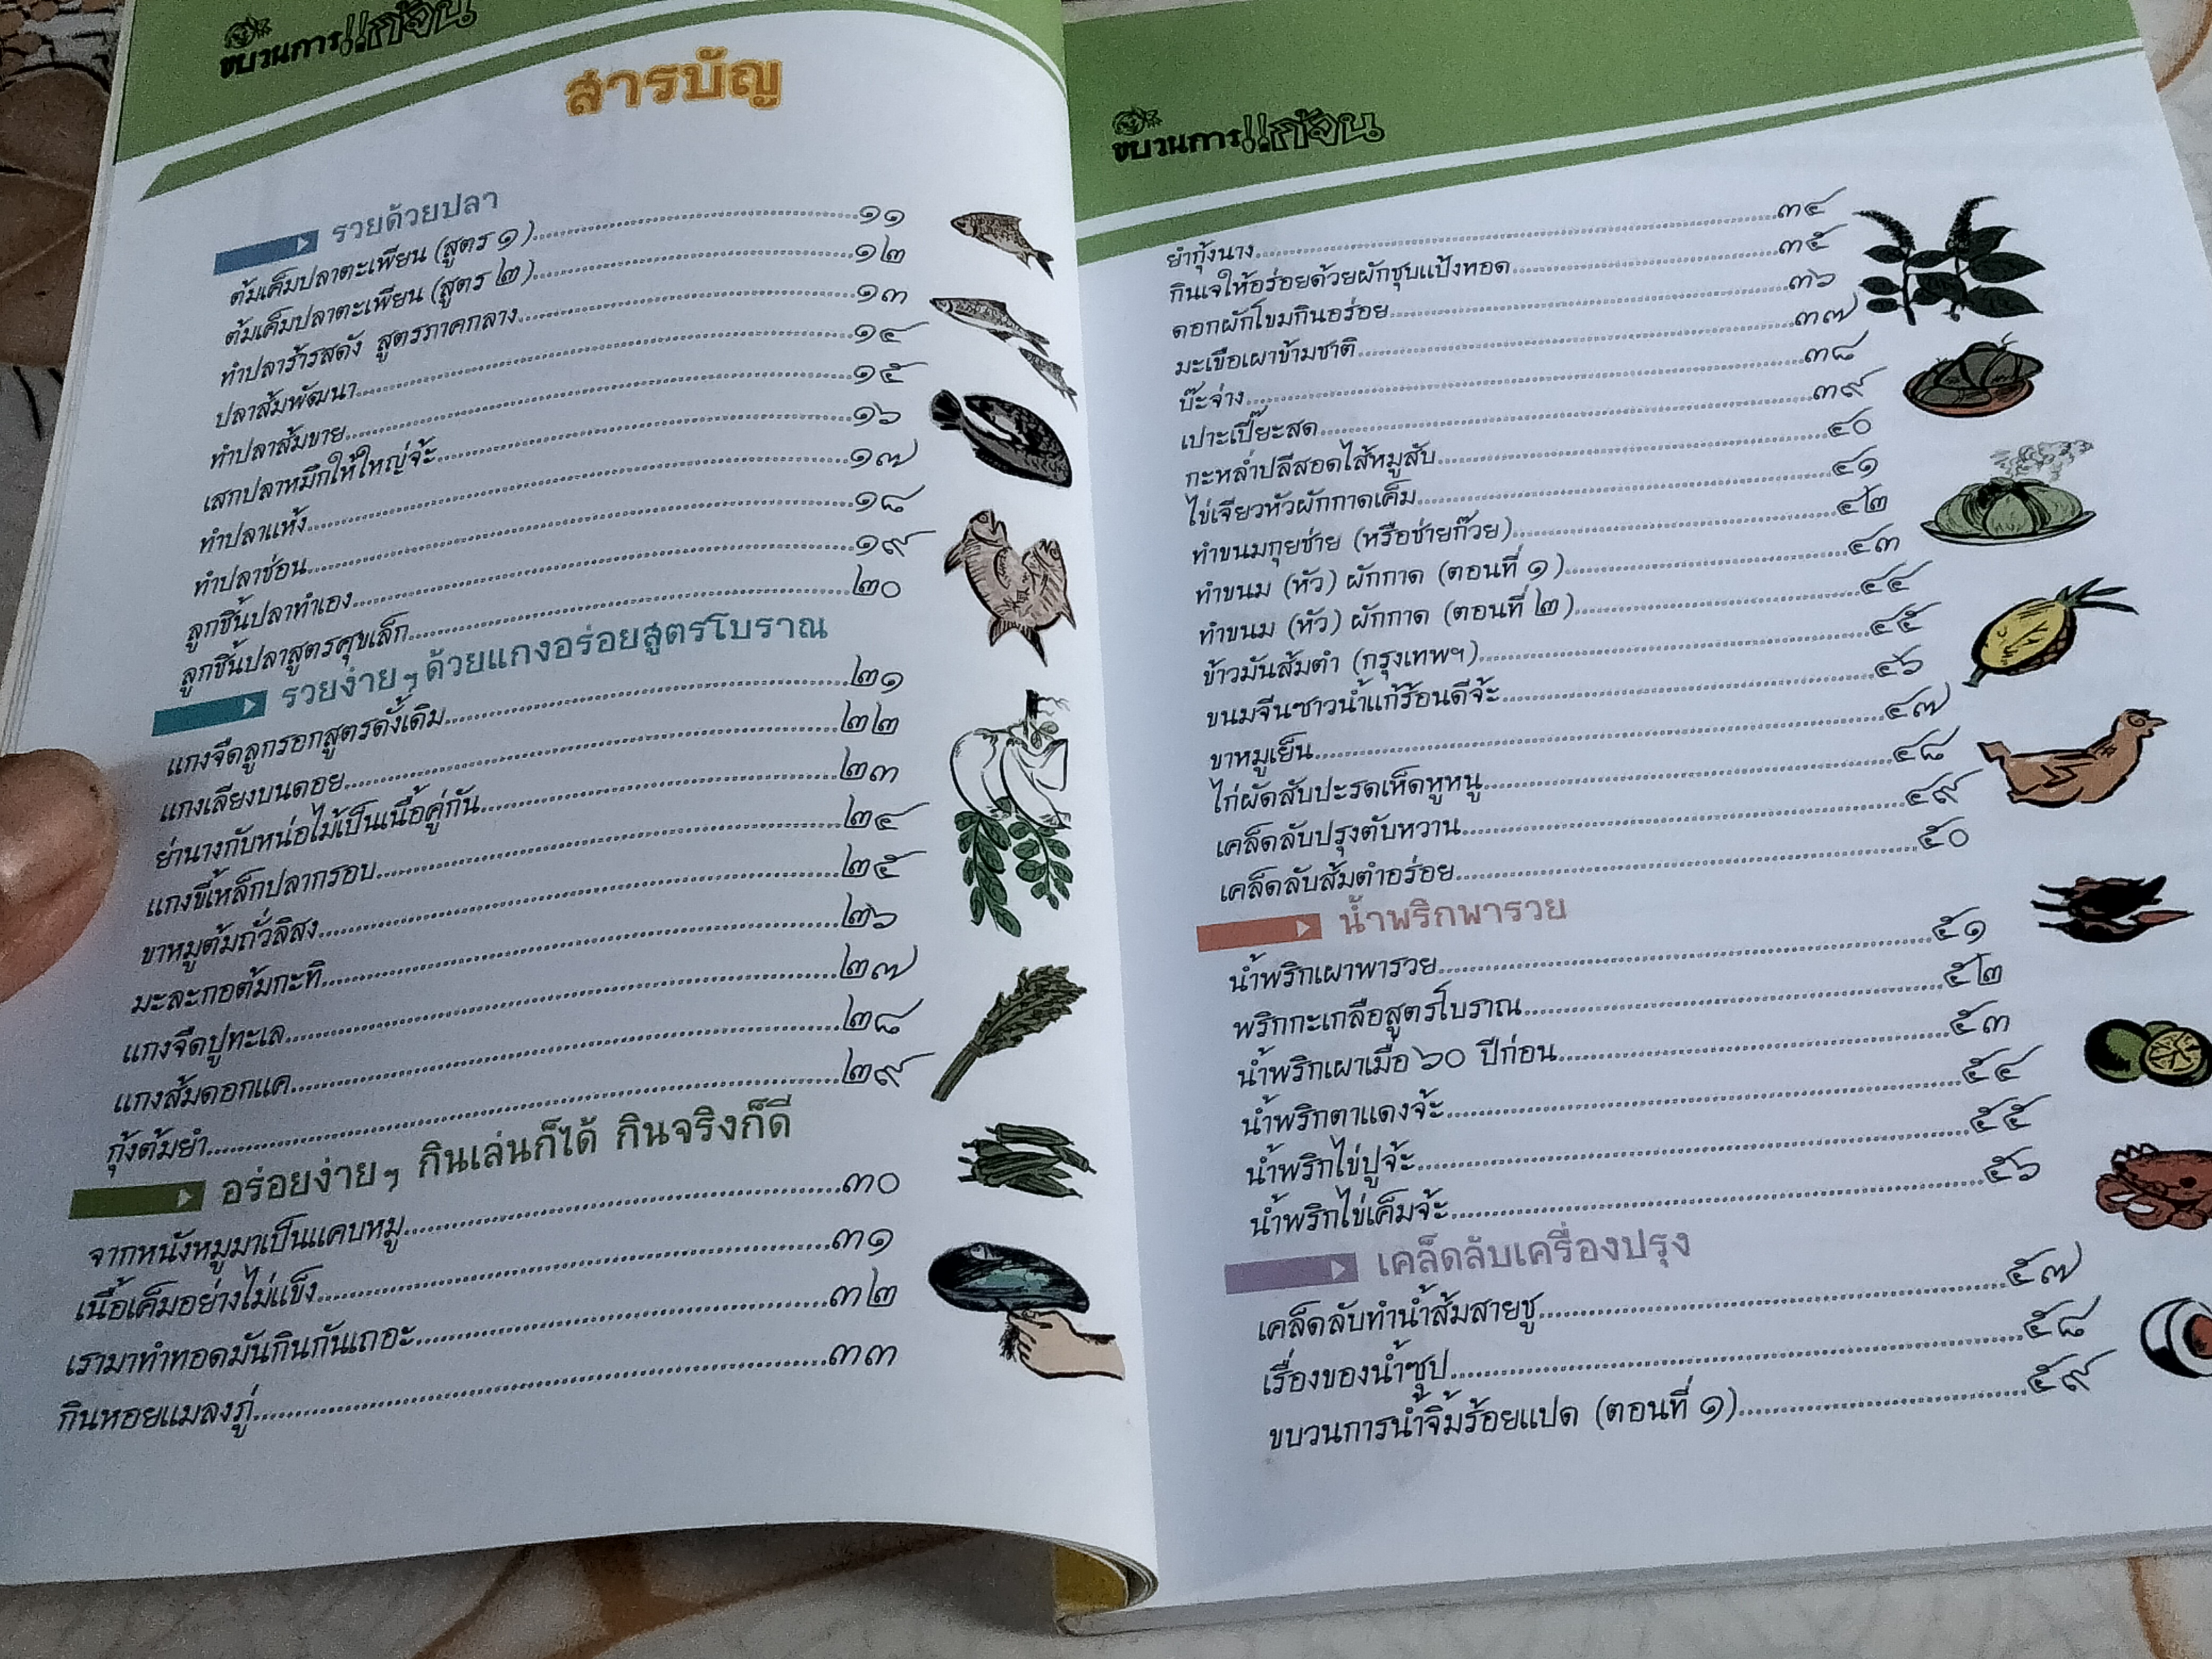 ขบวนการแก้จน
สารบัญ
รวยด้วยปลา
ต้มเค็มปลาตะเพียน (สูตร ๑)...๑๑
ต้มเค็มปลาตะเพียน (สูตร ๒)...๑๒
ทำปลาร้ารสดัง สูตรภาคกลาง...๑๓
ปลาส้มพัฒนา...๑๔
ทำปลาส้มขาย...๑๕
เสกปลาหมึกให้ใหญ่จ้ะ...๑๖
ทำปลาแห้ง...๑๗
ทำปลาช่อน...๑๘
ลูกชิ้นปลาทำเอง...๑๙
ลูกชิ้นปลาสูตรศุขเล็ก...๒๐
รวยง่ายๆ ด้วยแกงอร่อยสูตรโบราณ
แกงจืดลูกรอกสูตรดั้งเดิม...๒๑
แกงเลียงบนดอย...๒๒
ย่านางกับหน่อไม้เป็นเนื้อคู่กัน...๒๓
แกงขี้เหล็กปลากรอบ...๒๔
ขาหมูต้มถั่วลิสง...๒๕
มะละกอต้มกะทิ...๒๖
แกงจืดปูทะเล...๒๗
แกงส้มดอกแค...๒๘
กุ้งต้มยำ...๒๙
อร่อยง่ายๆ กินเล่นก็ได้ กินจริงก็ดี
จากหนังหมูมาเป็นแคบหมู...๓๐
เนื้อเค็มอย่างไม่แข็ง...๓๑
เรามาทำทอดมันกินกันเถอะ...๓๒
กินหอยแมลงภู่...๓๓
ขบวนการแก้จน
ยำกุ้งนาง...๓๔
กินเจให้อร่อยด้วยผักชุบแป้งทอด...๓๕
ดอกผักโขมกินอร่อย...๓๖
มะเขือเผาข้ามชาติ...๓๗
บ๊ะจ่าง...๓๘
เปาะเปี๊ยะสด...๓๙
กะหล่ำปลีสอดไส้หมูสับ...๔๐
ไข่เจียวหัวผักกาดเค็ม...๔๑
ทำขนมกุยช่าย (หรือช่ายก๊วย)...๔๒
ทำขนม (หัว) ผักกาด (ตอนที่ ๑)...๔๓
ทำขนม (หัว) ผักกาด (ตอนที่ ๒)...๔๔
ข้าวมันส้มตำ (กรุงเทพฯ)...๔๕
ขนมจีนซาวน้ำแก้ร้อนดีจ้ะ...๔๖
ขาหมูเย็น...๔๗
ไก่ผัดสับปะรดเห็ดหูหนู...๔๘
เคล็ดลับปรุงตับหวาน...๔๙
เคล็ดลับส้มตำอร่อย...๕๐
น้ำพริกพารวย
น้ำพริกเผาพารวย...๕๑
พริกกะเกลือสูตรโบราณ...๕๒
น้ำพริกเผาเมื่อ ๖๐ ปีก่อน...๕๓
น้ำพริกตาแดงจ้ะ...๕๔
น้ำพริกไข่ปูจ้ะ...๕๕
น้ำพริกไข่เค็มจ้ะ...๕๖
เคล็ดลับเครื่องปรุง
เคล็ดลับทำน้ำส้มสายชู...๕๗
เรื่องของน้ำซุป...๕๘
ขบวนการน้ำจิ้มร้อยแปด (ตอนที่ ๑)...๕๙